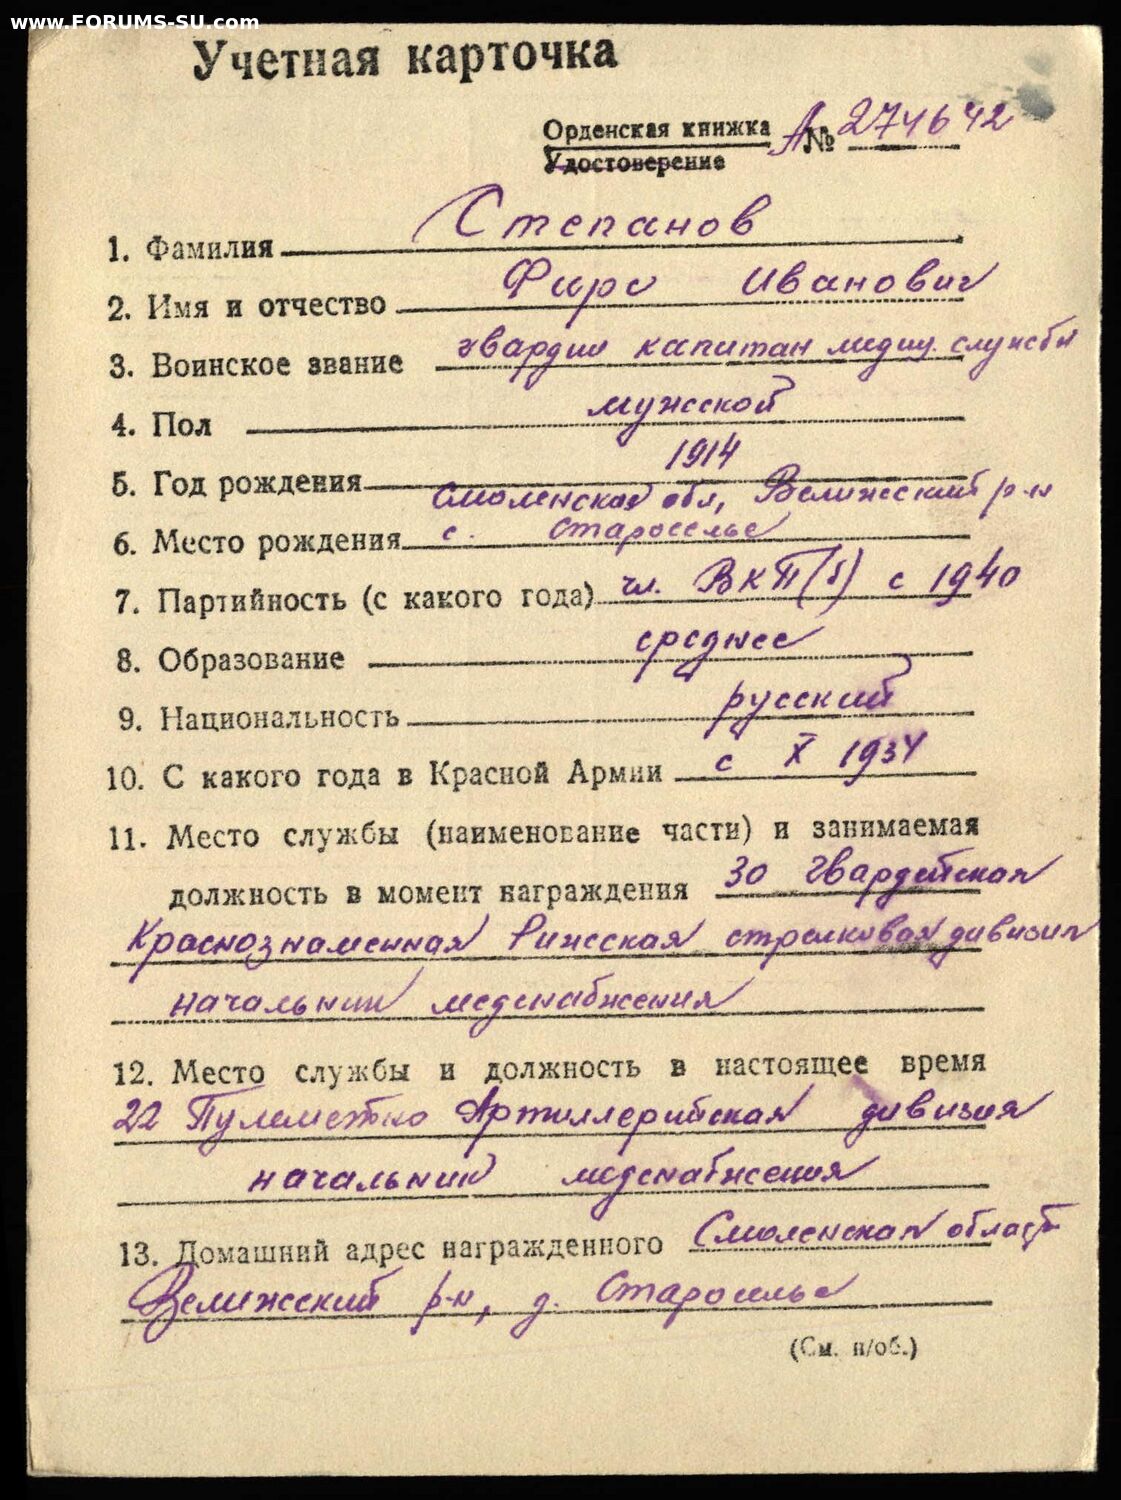 www.FORUMS-SU.com
Учетная карточка
Орденская книжка А № 274642
Удостоверение
1. Фамилия Степанов
2. Имя и отчество Фирс Иванович
3. Воинское звание гвардии капитан медиц. службы
4. Пол мужской
5. Год рождения 1914
Смоленская обл, Велижский р-н
6. Место рождения с. Староселье
7. Партийность (с какого года) чл. ВКП(б) с 1940
8. Образование среднее
9. Национальность русский
10. С какого года в Красной Армии с X 1934
11. Место службы (наименование части) и занимаемая
должность в момент награждения 30 Гвардейская
Краснознаменная Рижская стрелковая дивизия
начальник медснабжения
12. Место службы и должность в настоящее время
22 Пулеметно Артиллерийская дивизия
начальник медснабжения
13. Домашний адрес награжденного Смоленская область
Велижский р-н, д. Староселье
(См. н/об.)